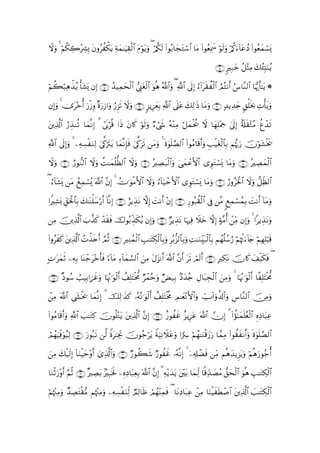 يَسْمَعُوا۟ دُعَآءَكُمْ وَلَوْ سَمِعُوا۟ مَا ٱسْتَجَابُوا۟ لَكُمْ ۖ وَيَوْمَ ٱلْقِيَـٰمَةِ يَكْفُرُونَ بِشِرْكِكُمْ ۚ وَلَا
يُنَبِّئُكَ مِثْلُ خَبِيرٍ
۞ يَـٰٓأَيُّهَا ٱلنَّاسُ أَنتُمُ ٱلْفُقَرَآءُ إِلَى ٱللَّهِ ۖ وَٱللَّهُ هُوَ ٱلْغَنِىُّ ٱلْحَمِيدُ إِن يَشَأْ يُذْهِبْكُمْ
وَيَأْتِ بِخَلْقٍ جَدِيدٍ وَمَا ذَٰلِكَ عَلَى ٱللَّهِ بِعَزِيزٍ وَلَا تَزِرُ وَازِرَةٌ وِزْرَ أُخْرَىٰ ۚ وَإِن
تَدْعُ مُثْقَلَةٌ إِلَىٰ حِمْلِهَا لَا يُحْمَلْ مِنْهُ شَىْءٌ وَلَوْ كَانَ ذَا قُرْبَىٰٓ ۗ إِنَّمَا تُنذِرُ ٱلَّذِينَ
يَخْشَوْنَ رَبَّهُم بِٱلْغَيْبِ وَأَقَامُوا۟ ٱلصَّلَوٰةَ ۚ وَمَن تَزَكَّىٰ فَإِنَّمَا يَتَزَكَّىٰ لِنَفْسِهِۦ ۚ وَإِلَى ٱللَّهِ
ٱلْمَصِيرُ وَمَا يَسْتَوِى ٱلْأَعْمَىٰ وَٱلْبَصِيرُ وَلَا ٱلظُّلُمَـٰتُ وَلَا ٱلنُّورُ وَلَا
ٱلظِّلُّ وَلَا ٱلْحَرُورُ وَمَا يَسْتَوِى ٱلْأَحْيَآءُ وَلَا ٱلْأَمْوَٰتُ ۚ إِنَّ ٱللَّهَ يُسْمِعُ مَن يَشَآءُ ۖ
وَمَآ أَنتَ بِمُسْمِعٍ مَّن فِى ٱلْقُبُورِ إِنْ أَنتَ إِلَّا نَذِيرٌ إِنَّآ أَرْسَلْنَـٰكَ بِٱلْحَقِّ بَشِيرًا
وَنَذِيرًا ۚ وَإِن مِّنْ أُمَّةٍ إِلَّا خَلَا فِيهَا نَذِيرٌ وَإِن يُكَذِّبُوكَ فَقَدْ كَذَّبَ ٱلَّذِينَ مِن
قَبْلِهِمْ جَآءَتْهُمْ رُسُلُهُم بِٱلْبَيِّنَـٰتِ وَبِٱلزُّبُرِ وَبِٱلْكِتَـٰبِ ٱلْمُنِيرِ ثُمَّ أَخَذْتُ ٱلَّذِينَ كَفَرُوا۟
ۖ فَكَيْفَ كَانَ نَكِيرِ أَلَمْ تَرَ أَنَّ ٱللَّهَ أَنزَلَ مِنَ ٱلسَّمَآءِ مَآءً فَأَخْرَجْنَا بِهِۦ ثَمَرَٰتٍ
مُّخْتَلِفًا أَلْوَٰنُهَا ۚ وَمِنَ ٱلْجِبَالِ جُدَدٌۢ بِيضٌ وَحُمْرٌ مُّخْتَلِفٌ أَلْوَٰنُهَا وَغَرَابِيبُ سُودٌ
وَمِنَ ٱلنَّاسِ وَٱلدَّوَآبِّ وَٱلْأَنْعَـٰمِ مُخْتَلِفٌ أَلْوَٰنُهُۥ كَذَٰلِكَ ۗ إِنَّمَا يَخْشَى ٱللَّهَ مِنْ
عِبَادِهِ ٱلْعُلَمَـٰٓؤُا۟ ۗ إِنَّ ٱللَّهَ عَزِيزٌ غَفُورٌ إِنَّ ٱلَّذِينَ يَتْلُونَ كِتَـٰبَ ٱللَّهِ وَأَقَامُوا۟
ٱلصَّلَوٰةَ وَأَنفَقُوا۟ مِمَّا رَزَقْنَـٰهُمْ سِرًّا وَعَلَانِيَةً يَرْجُونَ تِجَـٰرَةً لَّن تَبُورَ لِيُوَفِّيَهُمْ
أُجُورَهُمْ وَيَزِيدَهُم مِّن فَضْلِهِۦٓ ۚ إِنَّهُۥ غَفُورٌ شَكُورٌ وَٱلَّذِىٓ أَوْحَيْنَآ إِلَيْكَ مِنَ
ٱلْكِتَـٰبِ هُوَ ٱلْحَقُّ مُصَدِّقًا لِّمَا بَيْنَ يَدَيْهِ ۗ إِنَّ ٱللَّهَ بِعِبَادِهِۦ لَخَبِيرٌۢ بَصِيرٌ ثُمَّ أَوْرَثْنَا
ٱلْكِتَـٰبَ ٱلَّذِينَ ٱصْطَفَيْنَا مِنْ عِبَادِنَا ۖ فَمِنْهُمْ ظَالِمٌ لِّنَفْسِهِۦ وَمِنْهُم مُّقْتَصِدٌ وَمِنْهُمْ